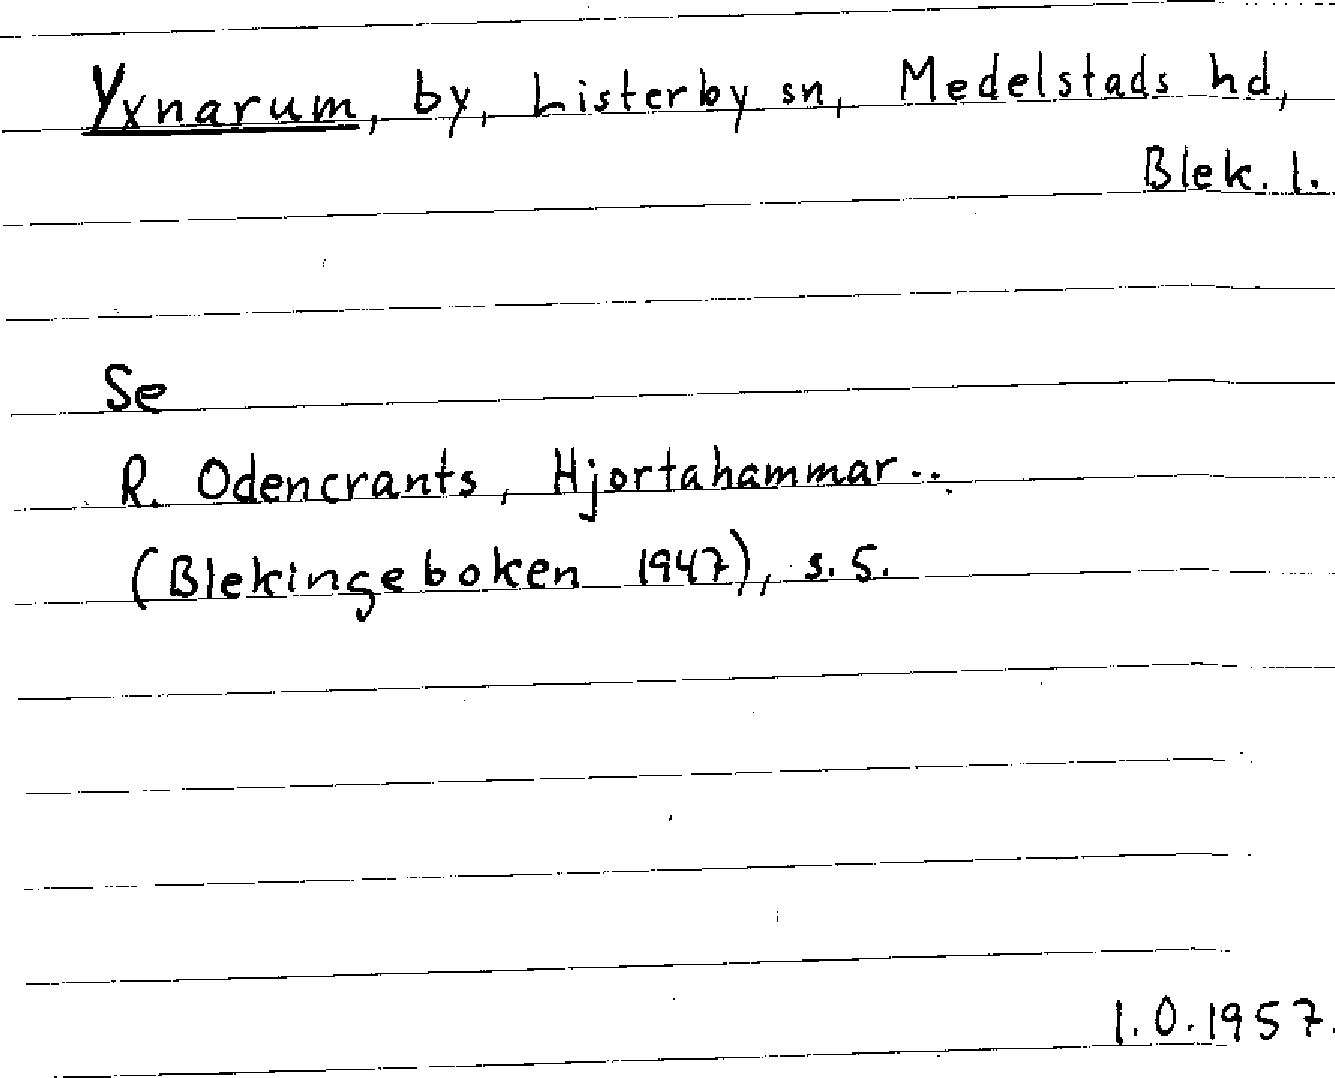 Yxnarum, by, Listerby sn, Medelstads hd,
Blek. l.
Se
R. Odencrants, Hjortahammar...
(Blekingeboken 1947), s. 5.
1.0.1957.